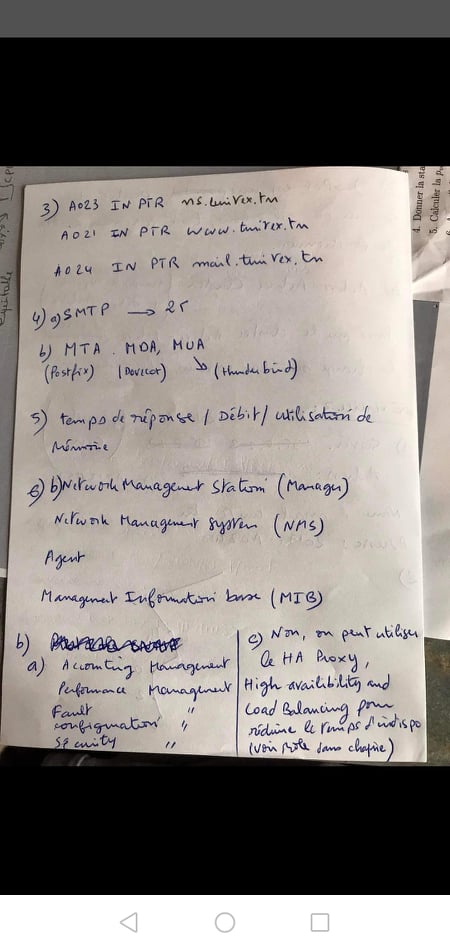 3) A023 IN PTR ns.tunirex.tn
A021 IN PTR www.tunirex.tn
A024 IN PTR mail.tunirex.tn
4) a) SMTP → 25
b) MTA. MDA, MUA
(Postfix) (Dovecot) ↘ (thunderbird)
5) temps de réponse / Débit / utilisation de
Mémoire
6) b) Network Management Station (Manager)
Network Management System (NMS)
Agent
Management Information base (MIB)
b)
a) Accounting Management
Performance Management
Fault "
configuration "
Security "
c) Non, on peut utiliser
le HA Proxy,
High availibility and
Load Balancing pour
réduire le temps d'indispo
(voir rôle dans chapitre)
4. Donner la sta
5. Calculer la